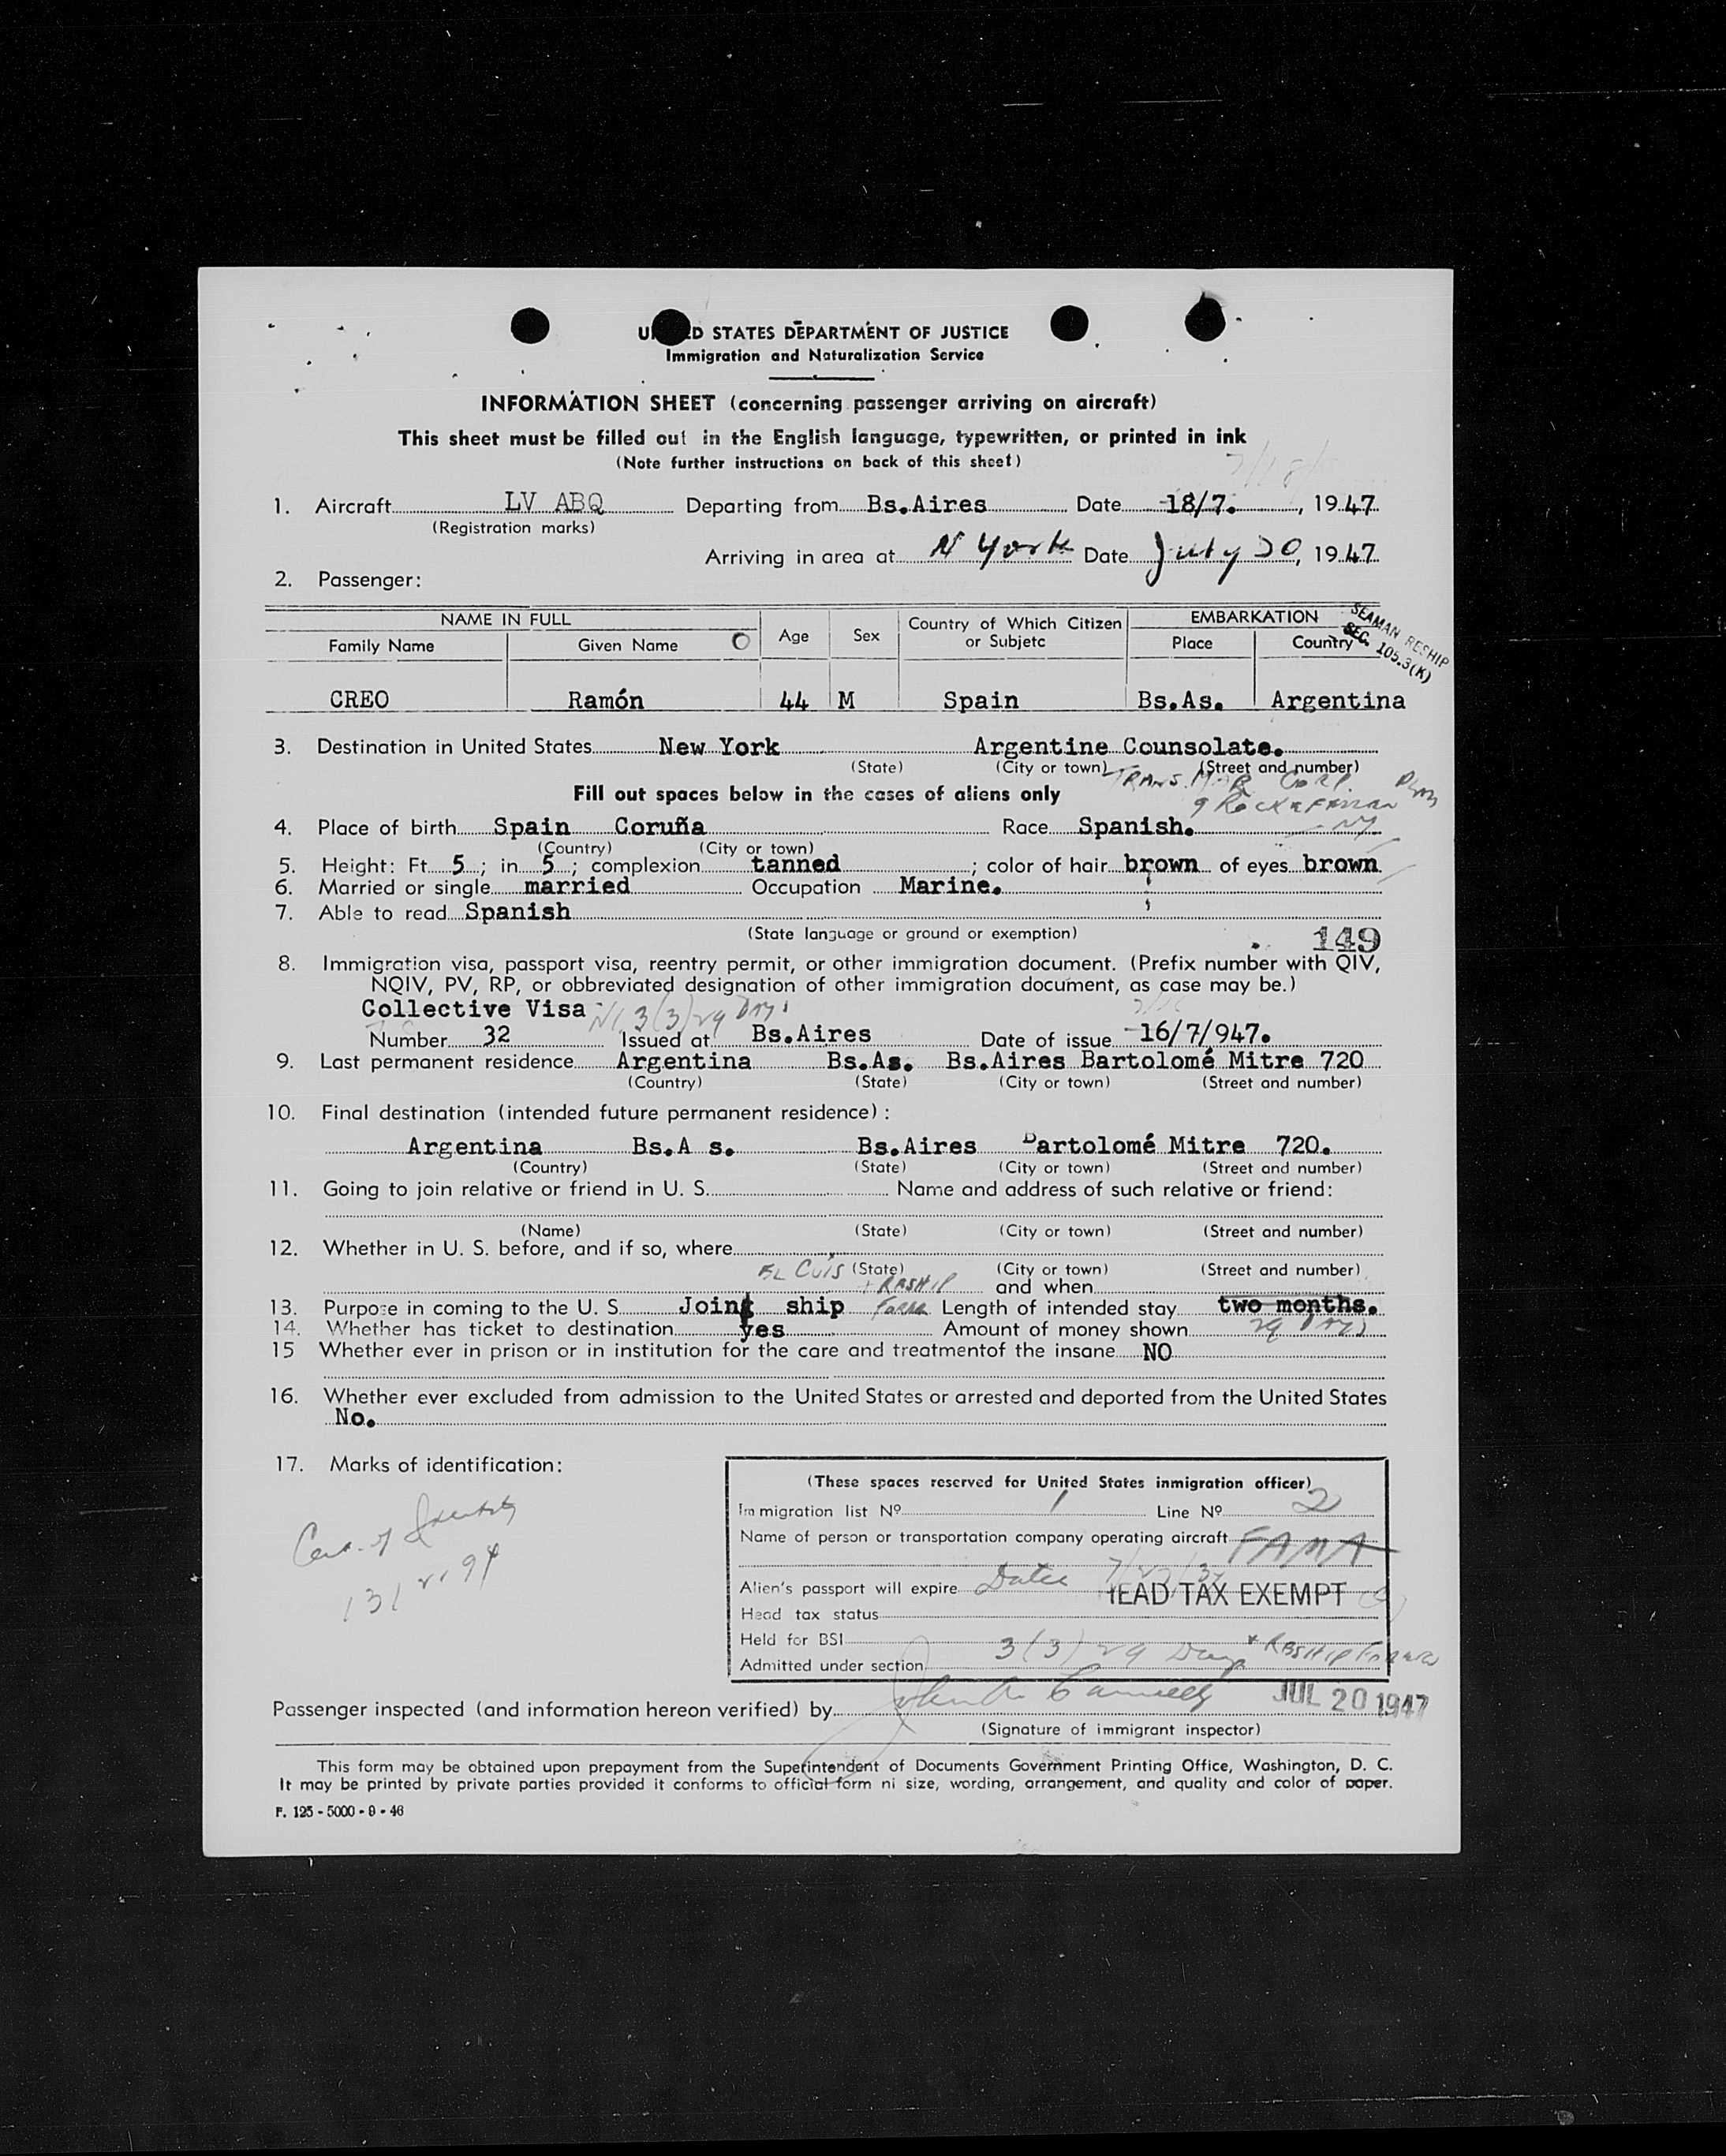 UNITED STATES DEPARTMENT OF JUSTICE
Immigration and Naturalization Service
INFORMATION SHEET (concerning passenger arriving on aircraft)
This sheet must be filled out in the English language, typewritten, or printed in ink
(Note further instructions on back of this sheet)
1. Aircraft LV ABQ Departing from Bs.Aires Date 18/7. , 1947
(Registration marks)
Arriving in area at N York Date July 20, 1947
2. Passenger:
NAME IN FULL EMBARKATION
Family Name Given Name Age Sex Country of Which Citizen or Subjetc Place Country
SEAMAN RESHIP
SEC. 105.3(K)
CREO Ramón 44 M Spain Bs.As. Argentina
3. Destination in United States New York Argentine Counsolate.
(State) (City or town) (Street and number)
TRANS. MAR CORP.
9 ROCKEFELLER PLAZA
NY
Fill out spaces below in the cases of aliens only
4. Place of birth Spain Coruña Race Spanish.
(Country) (City or town)
5. Height: Ft. 5 ; in 5 ; complexion tanned ; color of hair brown of eyes brown
6. Married or single married Occupation Marine.
7. Able to read Spanish
(State language or ground or exemption)
149
8. Immigration visa, passport visa, reentry permit, or other immigration document. (Prefix number with QIV,
NQIV, PV, RP, or obbreviated designation of other immigration document, as case may be.)
Collective Visa 3(3) 29 DAYS
Number 32 Issued at Bs.Aires Date of issue 16/7/947.
9. Last permanent residence Argentina Bs.As. Bs.Aires Bartolomé Mitre 720
(Country) (State) (City or town) (Street and number)
10. Final destination (intended future permanent residence):
Argentina Bs.A s. Bs.Aires Bartolomé Mitre 720.
(Country) (State) (City or town) (Street and number)
11. Going to join relative or friend in U. S. Name and address of such relative or friend:
(Name) (State) (City or town) (Street and number)
12. Whether in U. S. before, and if so, where
(State) (City or town) (Street and number)
+ RESHIP and when
13. Purpose in coming to the U. S. Joint ship Length of intended stay two months.
14. Whether has ticket to destination yes Amount of money shown 29 DAYS
15 Whether ever in prison or in institution for the care and treatmentof the insane NO
16. Whether ever excluded from admission to the United States or arrested and deported from the United States
No.
17. Marks of identification:
Cert. of Identity
(These spaces reserved for United States inmigration officer)
Immigration list Nº 1 Line Nº 2
Name of person or transportation company operating aircraft FAMA
Alien's passport will expire
HEAD TAX EXEMPT
Head tax status
Held for BSI
Admitted under section 3(3) 29 Days + RESHIP
Passenger inspected (and information hereon verified) by JUL 20 1947
(Signature of immigrant inspector)
This form may be obtained upon prepayment from the Superintendent of Documents Government Printing Office, Washington, D. C.
It may be printed by private parties provided it conforms to official form ni size, wording, arrangement, and quality and color of paper.
F. 125 - 5000 - 9 - 46